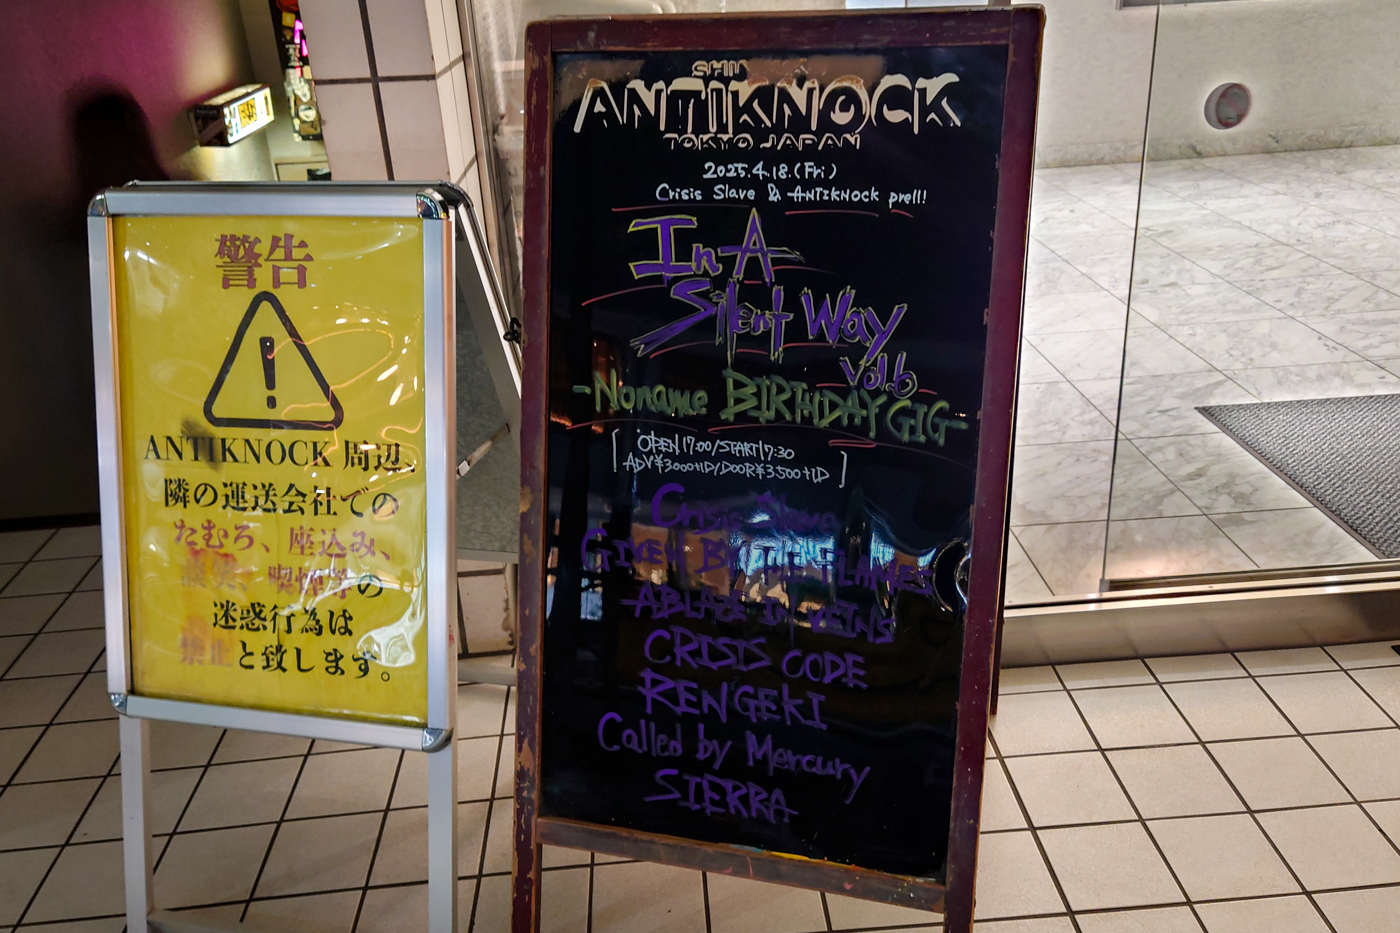 警告
ANTIKNOCK 周辺、
隣の運送会社での
たむろ、座込み、
談笑、喫煙等の
迷惑行為は
禁止と致します。
SHIN
ANTIKNOCK
TOKYO JAPAN
2025.4.18.(Fri)
Crisis Slave & ANTIKNOCK pre!!!
In A
Silent Way
vol.6
-Noname BIRTHDAY GIG-
OPEN 17:00/START 17:30
ADV¥3000+1D/DOOR¥3,500+1D
Crisis Slave
GIVEN BY THE FLAMES
ABLAZE IN VEINS
CRISIS CODE
RENGEKI
Called by Mercury
SIERRA